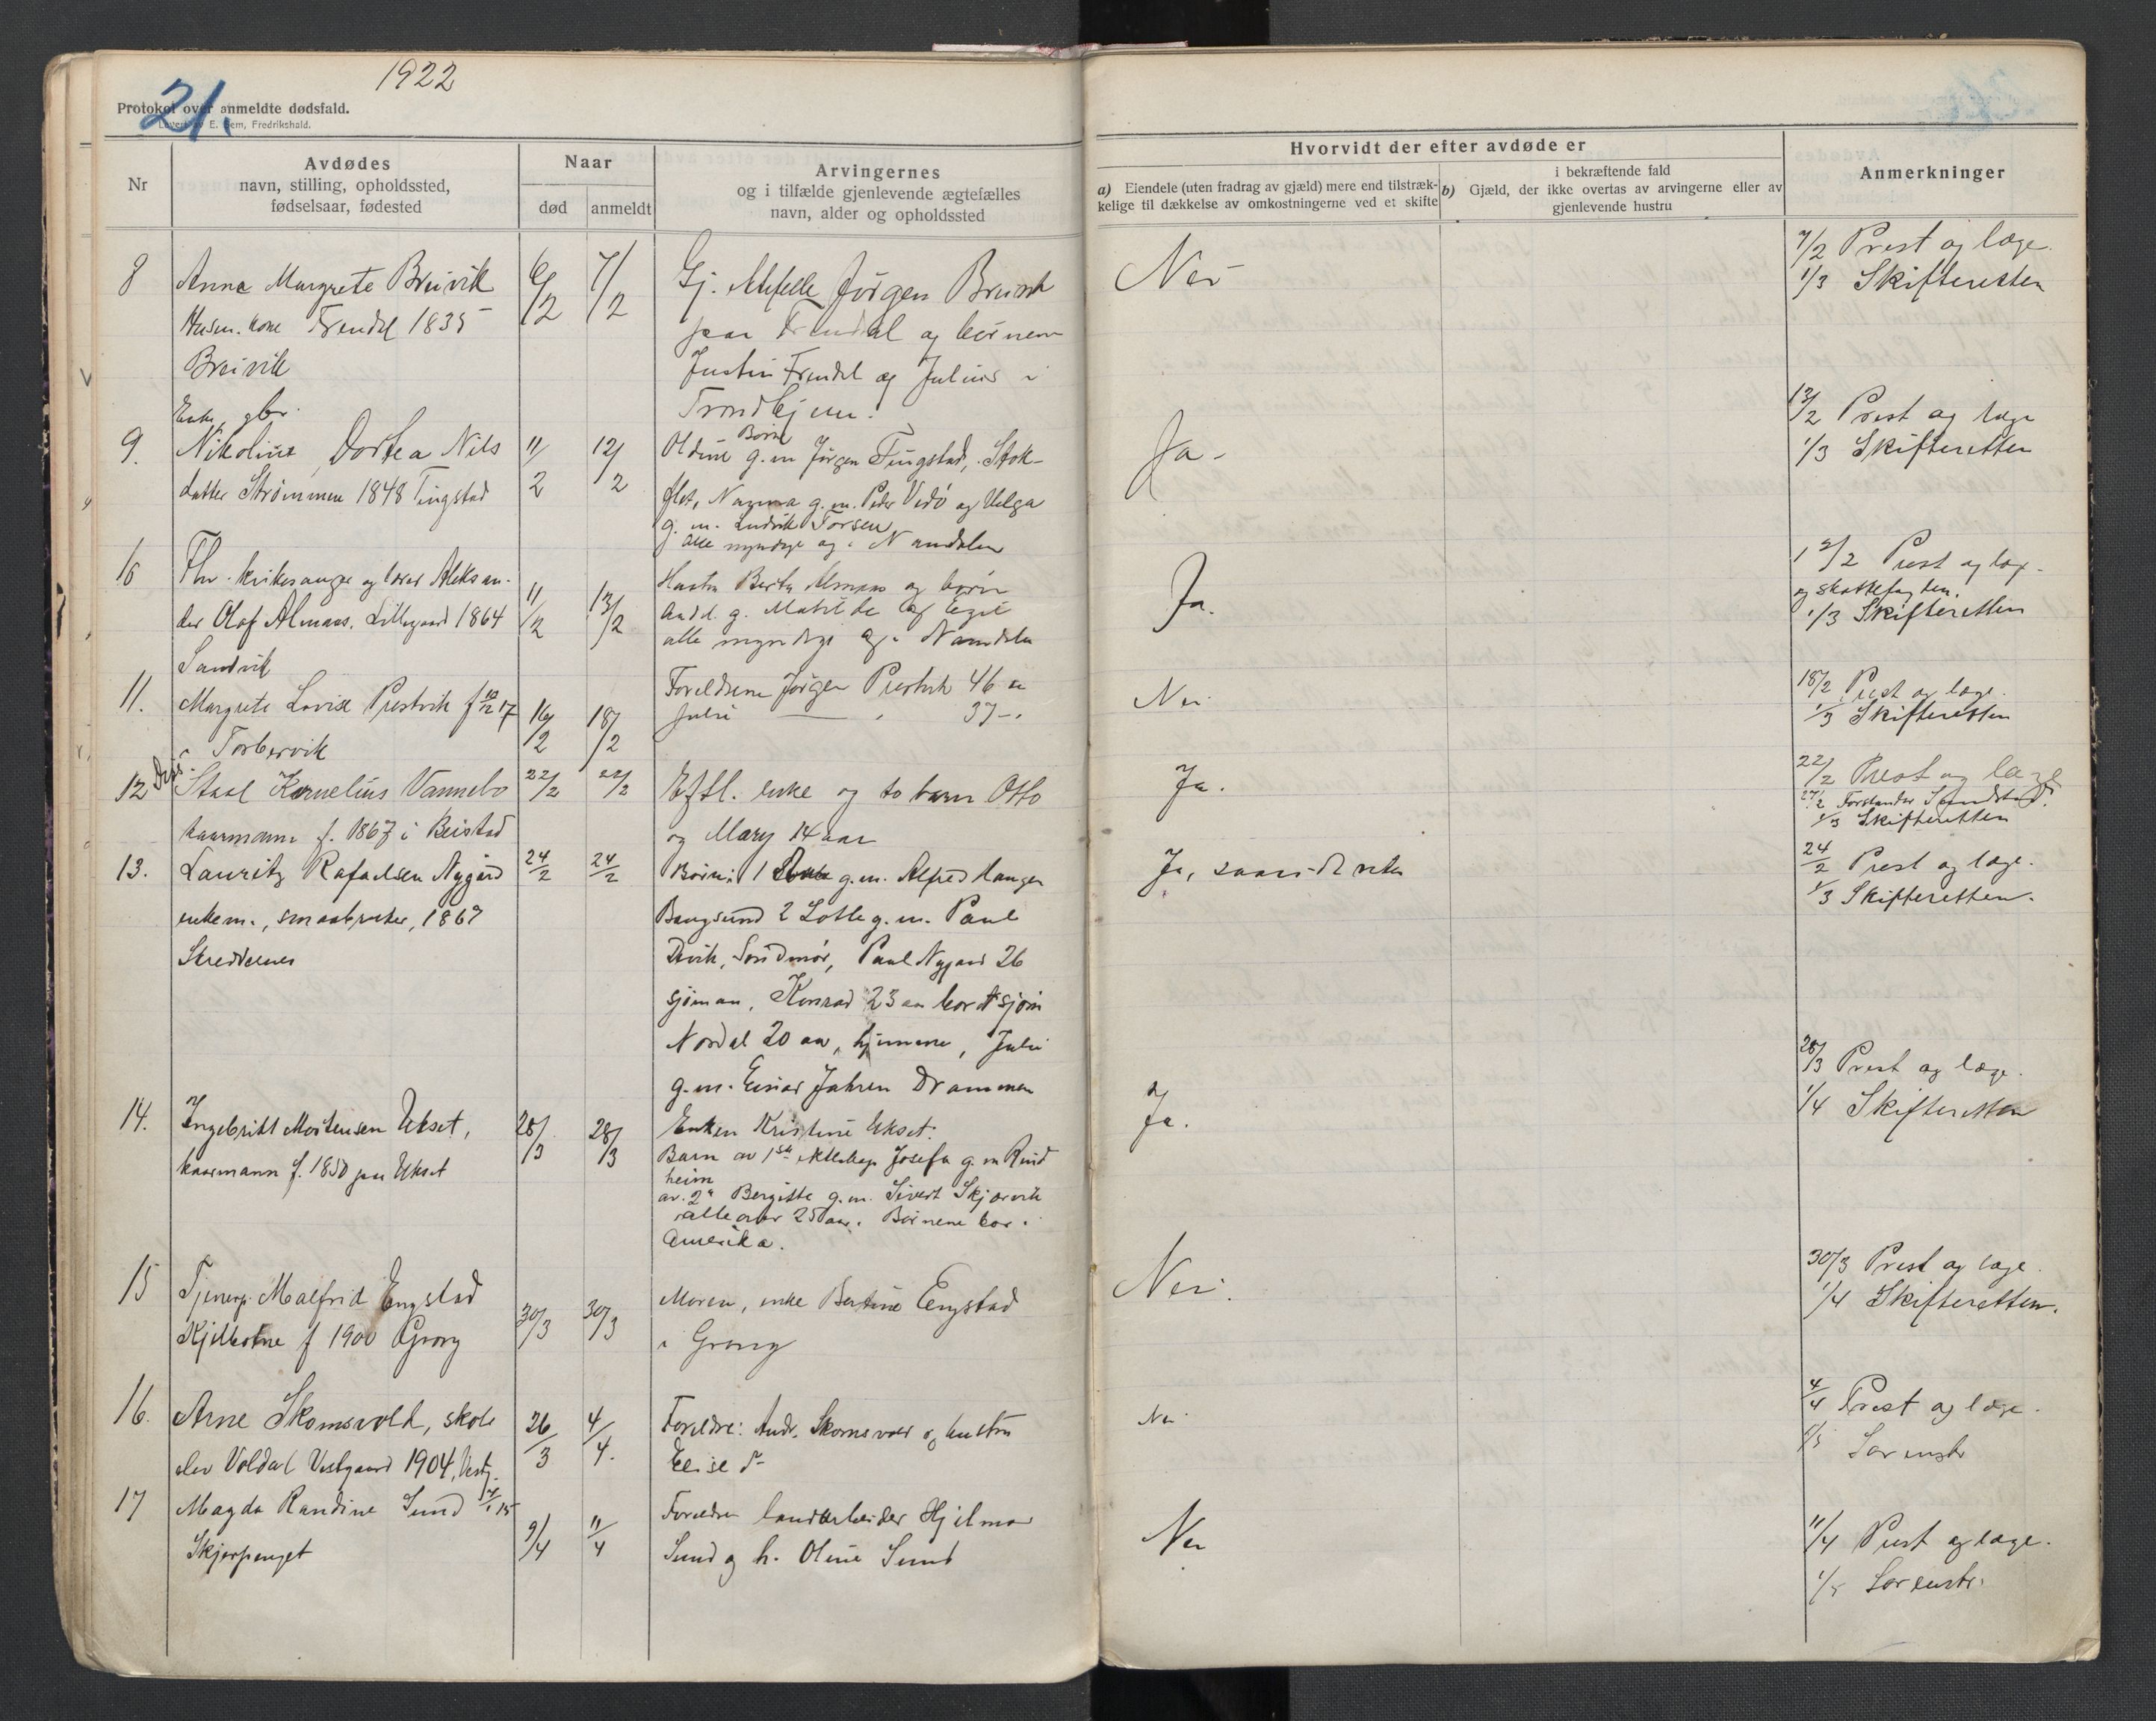 1922
21.
Protokol over anmeldte dødsfald.
Levert av E. Sem, Fredrikshald.
Nr
Avdødes
navn, stilling, opholdssted,
fødselsaar, fødested
Naar
død
anmeldt
Arvingernes
og i tilfælde gjenlevende ægtefælles
navn, alder og opholdssted
Hvorvidt der efter avdøde er
a) Eiendele (uten fradrag av gjæld) mere end tilstræk-
kelige til dækkelse av omkostningerne ved et skifte
i bekræftende fald
b) Gjæld, der ikke overtas av arvingerne eller av
gjenlevende hustru
Anmerkninger
8
Anna Margrete Breivik
Husm. kone Frendal 1835
Breivik
6/2
7/2
Gj. Jörgen Breivik
paa og börnene
Justin Frendal og Julius i
Trondhjem.
Nei
7/2 Prest og læge.
1/3 Skifteretten
9.
Enke gbr.
Nikoline Dortea Nils
datter Strömmen 1848 Tingstad
11/2
12/2
Börn
Oldine g.m Jörgen Tingstad, Stok-
flet, Nanna g.m. Peder Vidö og Helga
g. m. Ludvik Torsen
alle myndige og i Namdalen
Ja -
13/2 Prest og læge
1/3 Skifteretten
10
Fhv. kirkesanger og lærer Aleksan-
der Olaf Almaas. Lillegaard 1864
Sandvik
11/2
13/2
Hustru Berta Almaas og börn
g. Matilde og
alle myndige og i Namdalen
Ja.
Prest og læge.
og skattefogden.
1/3 Skifteretten
11.
Margrete Lovise Prestvik f 17
Torbervik
16/2
18/2
Foreldrene Jörgen Prestvik 46 a
Julie — " 37 - "
Nei
18/2 Prest og læge.
1/3 Skifteretten
12
Kornelius Vannebo
kaarmann f. 1867 i Beistad
22/2
22/2
Eftl. enke og to barn Otto
og Mary 14 aar
Ja.
22/2 Prest og læge
27/2 Forstander
1/3 Skifteretten
13.
Lauritz Rafaelsen Nygård
enkem., smaabruker, 1867
24/2
24/2
Börn: 1 g.m. Alfred Hauger
Bangsund 2 Lotte g.m. Paul
Sundmör, Paul Nygaard 26
sjöman, Konrad 23 aar
Nordal 20 aar, hjemme, Julie
g.m. Einar Jahren Drammen
Ja,
24/2 Prest og læge.
1/3 Skifteretten.
14.
Ingebrikt Mortensen Ukset,
kaarmann f. 1850 paa Ukset
28/3
28/3
Enken Kristine Ukset.
Barn av 1ste Josefa g. m Rind
heim
av. 2 Bergitte g.m. Sivert Skjærvik
alle over 25 aar. Börnene bor i
Amerika.
Ja.
28/3 Prest og læge.
1/4 Skifteretten
15
Tjenerp. Malfrid Engstad
f 1900 Grong
30/3
30/3
Moren, enke Bertine Engstad
i Grong
Nei.
30/3 Prest og læge.
1/4 Skifteretten.
16.
Arne Skomsvold, skole
elev Voldal Vestgaard 1904,
26/3
4/4.
Foreldre: Andr. Skomsvold og hustru
Elise do
Nei
4/4 Prest og læge.
1/5 Sorenskr
17
Magda Randine Sund 15
9/4
11/4
Foreldre landarbeider Hjelmar
Sund og h. Oline Sund
Nei
11/4 Prest og læge.
1/5 Sorenskr.